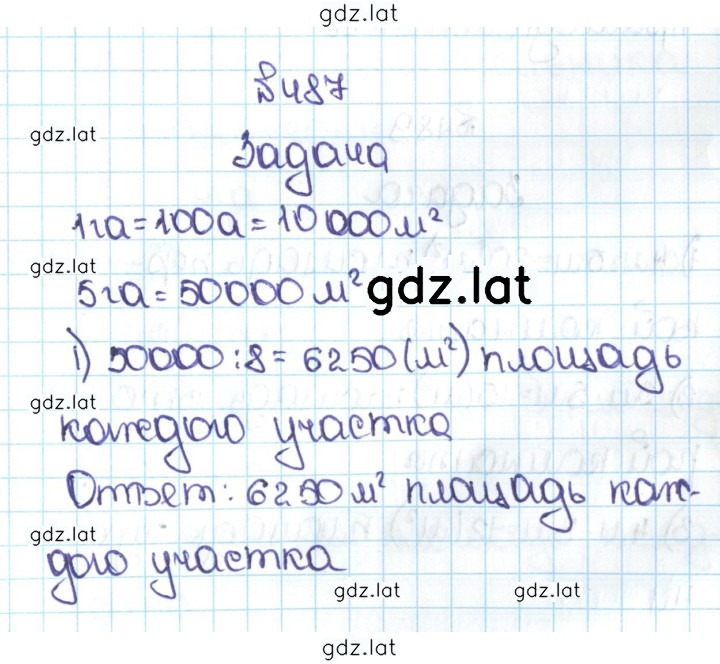 gdz.lat
№487
gdz.lat
Задача
1га=100а=10000м²
gdz.lat
5га=50000м² gdz.lat
1) 50000:8=6250(м²) площадь
gdz.lat
каждого участка
Ответ: 6250м² площадь каж-
gdz.lat
дого участка
gdz.lat gdz.lat
gdz.lat